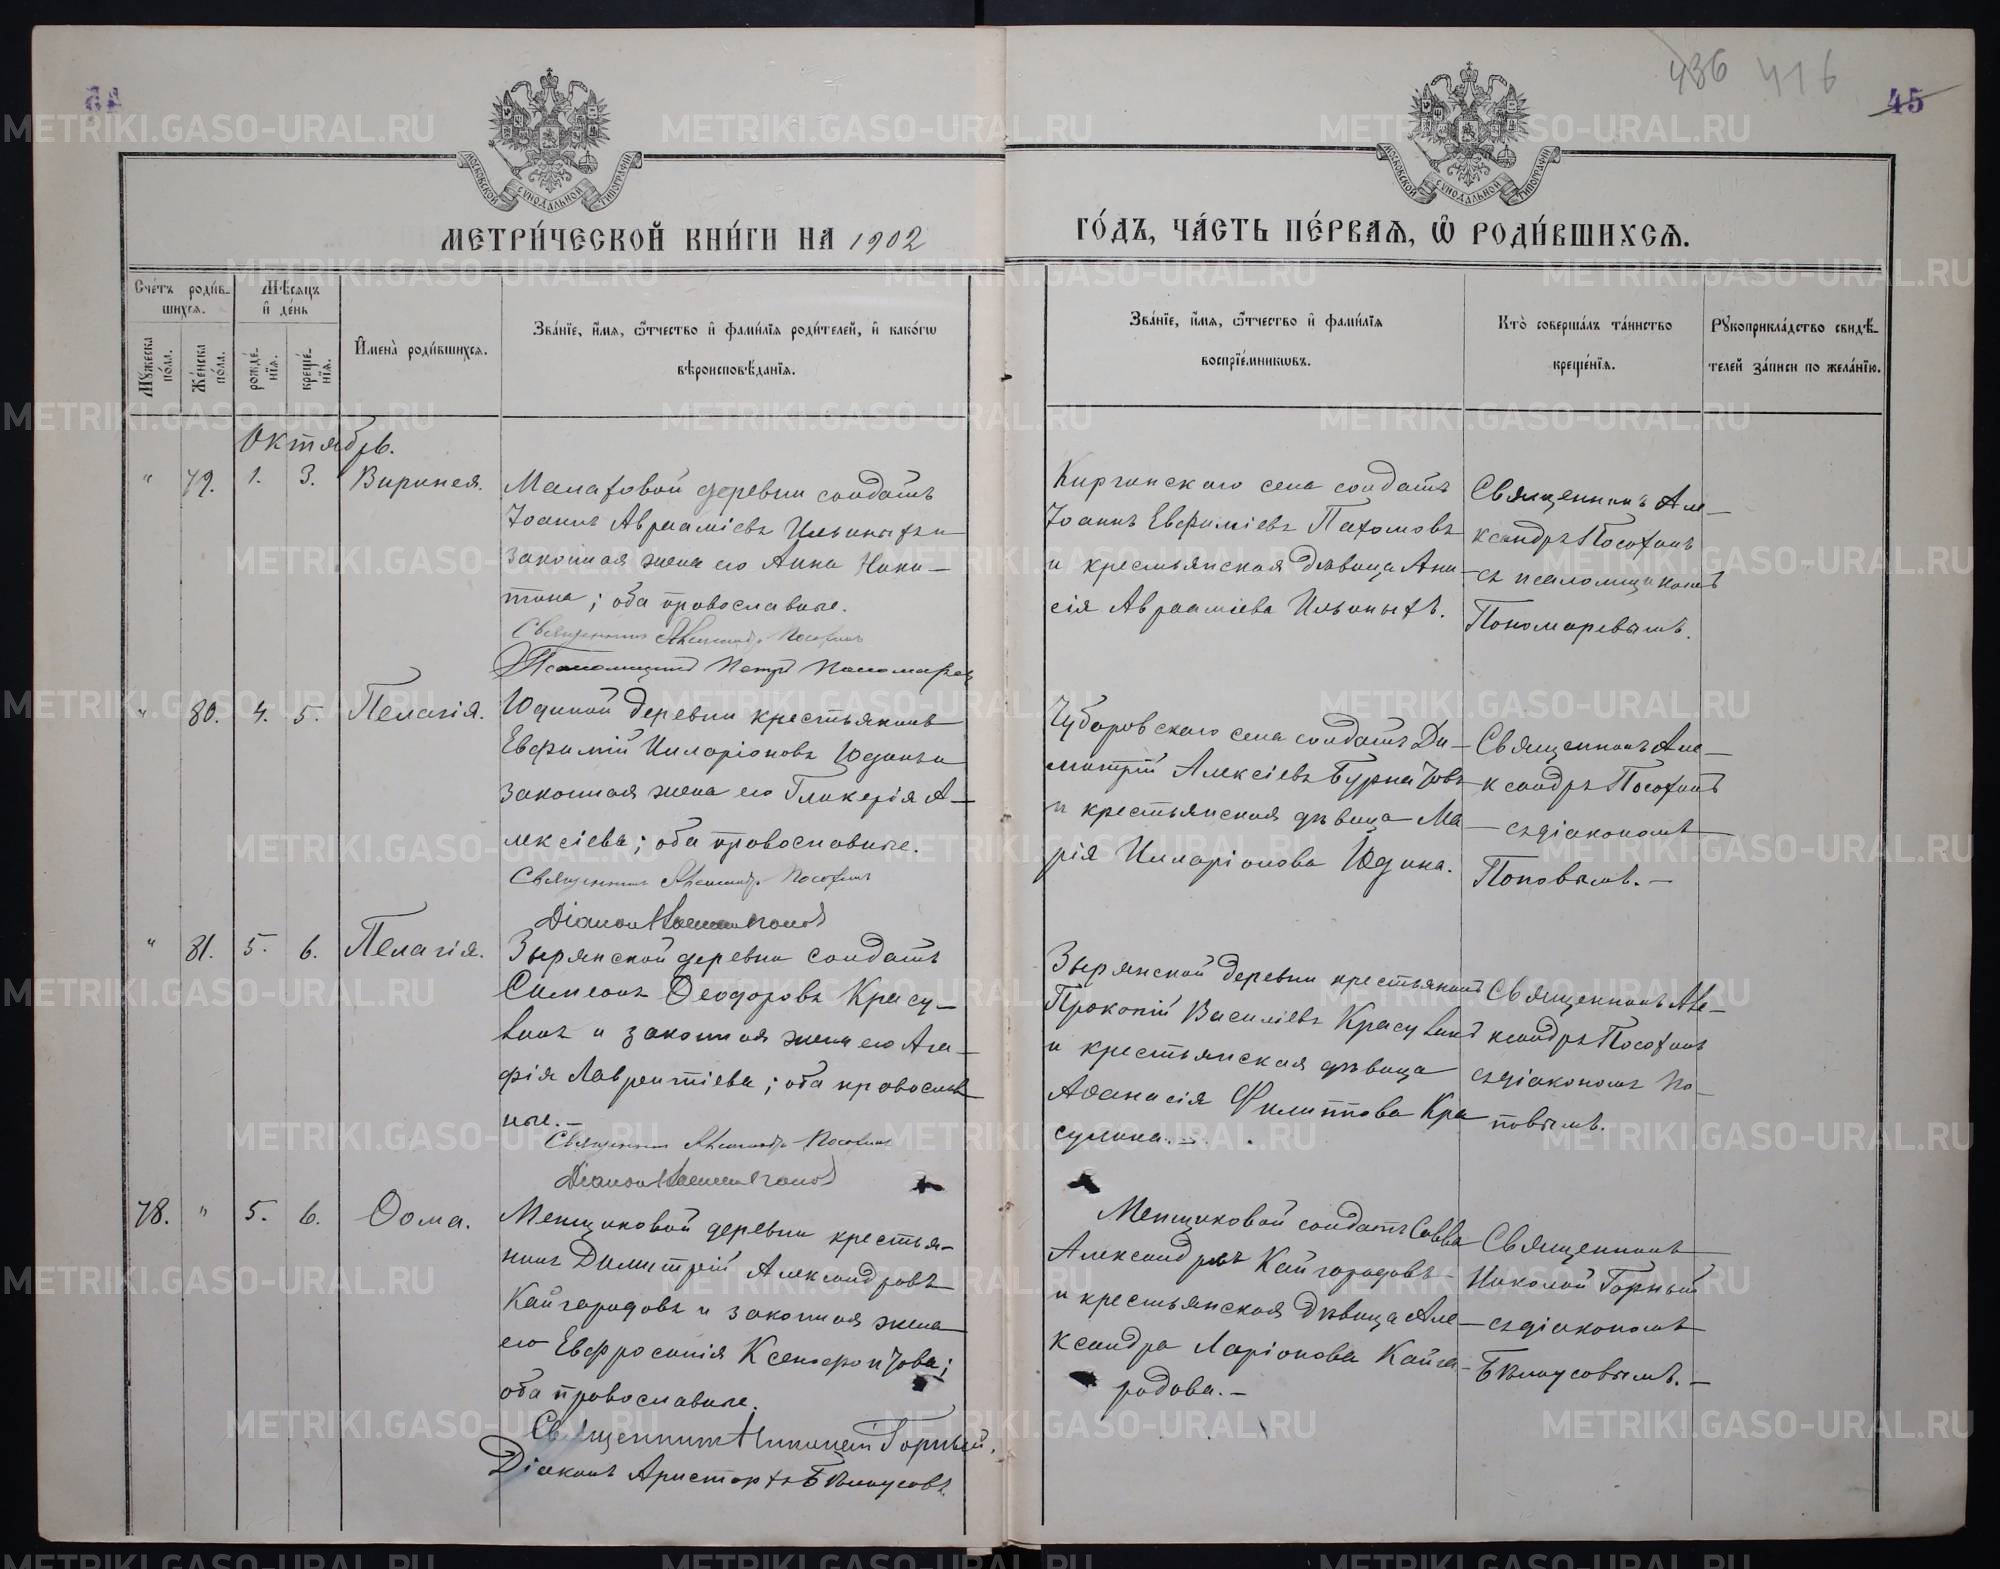 436 416
45
МОСКОВСКОЙ СѴНОДАЛЬНОЙ ТИПОГРАФІИ
МОСКОВСКОЙ СѴНОДАЛЬНОЙ ТИПОГРАФІИ
МЕТРИ́ЧЕСКОЙ КНИ́ГИ НА 1902
ГО́ДЪ, ЧА́СТЬ ПЕ́РВАЯ, Ѽ РОДИ́ВШИХСЯ.
Сче́тъ роди́в-
шихся.
Мꙋжеска по́ла.
Же́нска по́ла.
Мѣ́сяцъ
и҆ де́нь
рожде́-
нїѧ.
креще́-
нїѧ.
И҆мена̀ роди́вшихся.
Зва́нїе, и҆́мѧ, ѻ҆́тчество и҆ фами́лїѧ роди́телей, и҆ како́гѡ
вѣроисповѣ́данїѧ.
Зва́нїе, и҆́мѧ, ѻ҆́тчество и҆ фами́лїѧ
воспрїе́мникѡвъ.
Кто̀ соверша́лъ та́инство
креще́нїѧ.
Рꙋкоприкла́дство свидѣ́-
телей за́писи по жела́нїю.
Октябрь.
" 79. 1. 3. Виринея.
Малаховой деревни солдатъ
Іоаннъ Авраамiевъ Ильиныхъ и
законная жена его Анна Ники-
тина; оба православные.
Священникъ Александръ Пософинъ
Псаломщикъ Петръ Пономаревъ
Киргинскаго села солдатъ
Іоаннъ Евфиміевъ Пахомовъ
и крестьянская дѣвица Ани-
сія Авраамiева Ильиныхъ.
Священникъ Але-
ксандръ Пософинъ
съ псаломщикомъ
Пономаревымъ.
" 80. 4. 5. Пелагія.
Юдиной деревни крестьянинъ
Евфимій Иларіоновъ Юдинъ и
законная жена его Гликерія А-
лексіева; оба православные.
Священникъ Александръ Пософинъ
Діаконъ
Чубаровскаго села солдатъ Ди-
митрій Алексіевъ Бурнатовъ
и крестьянская дѣвица Ма-
рія Иларіонова Юдина.
Священникъ Але-
ксандръ Пософинъ
съ діакономъ
Поповымъ.-
" 81. 5. 6. Пелагія.
Зырянской деревни солдатъ
Симеонъ Ѳеодоровъ Красу-
линъ и законная жена его Ага-
фія Лаврентіева; оба православ
ные.-
Священникъ Александръ Пософинъ
Діаконъ
Зырянской деревни крестьянинъ
Прокопій Василіевъ Красулинъ
и крестьянская дѣвица
Аѳанасія Филиппова Кра
сулина.-
Священникъ Але-
ксандръ Пософинъ
съ діакономъ По-
повымъ.
78. " 5. 6. Ѳома.
Менщиковой деревни крестья-
нинъ Димитрій Александровъ
Кайгородовъ и законная жена
его Евфросинія Ксенофонтова;
оба православные.
Священникъ Николай Горный.
Діаконъ Аристархъ Бѣлоусовъ.
Менщиковой солдатъ Савва
Александровъ Кайгородовъ
и крестьянская дѣвица Але-
ксандра Ларіонова Кайго-
родова.-
Священникъ
Николай Горный
съ діакономъ
Бѣлоусовымъ.-
METRIKI.GASO-URAL.RU